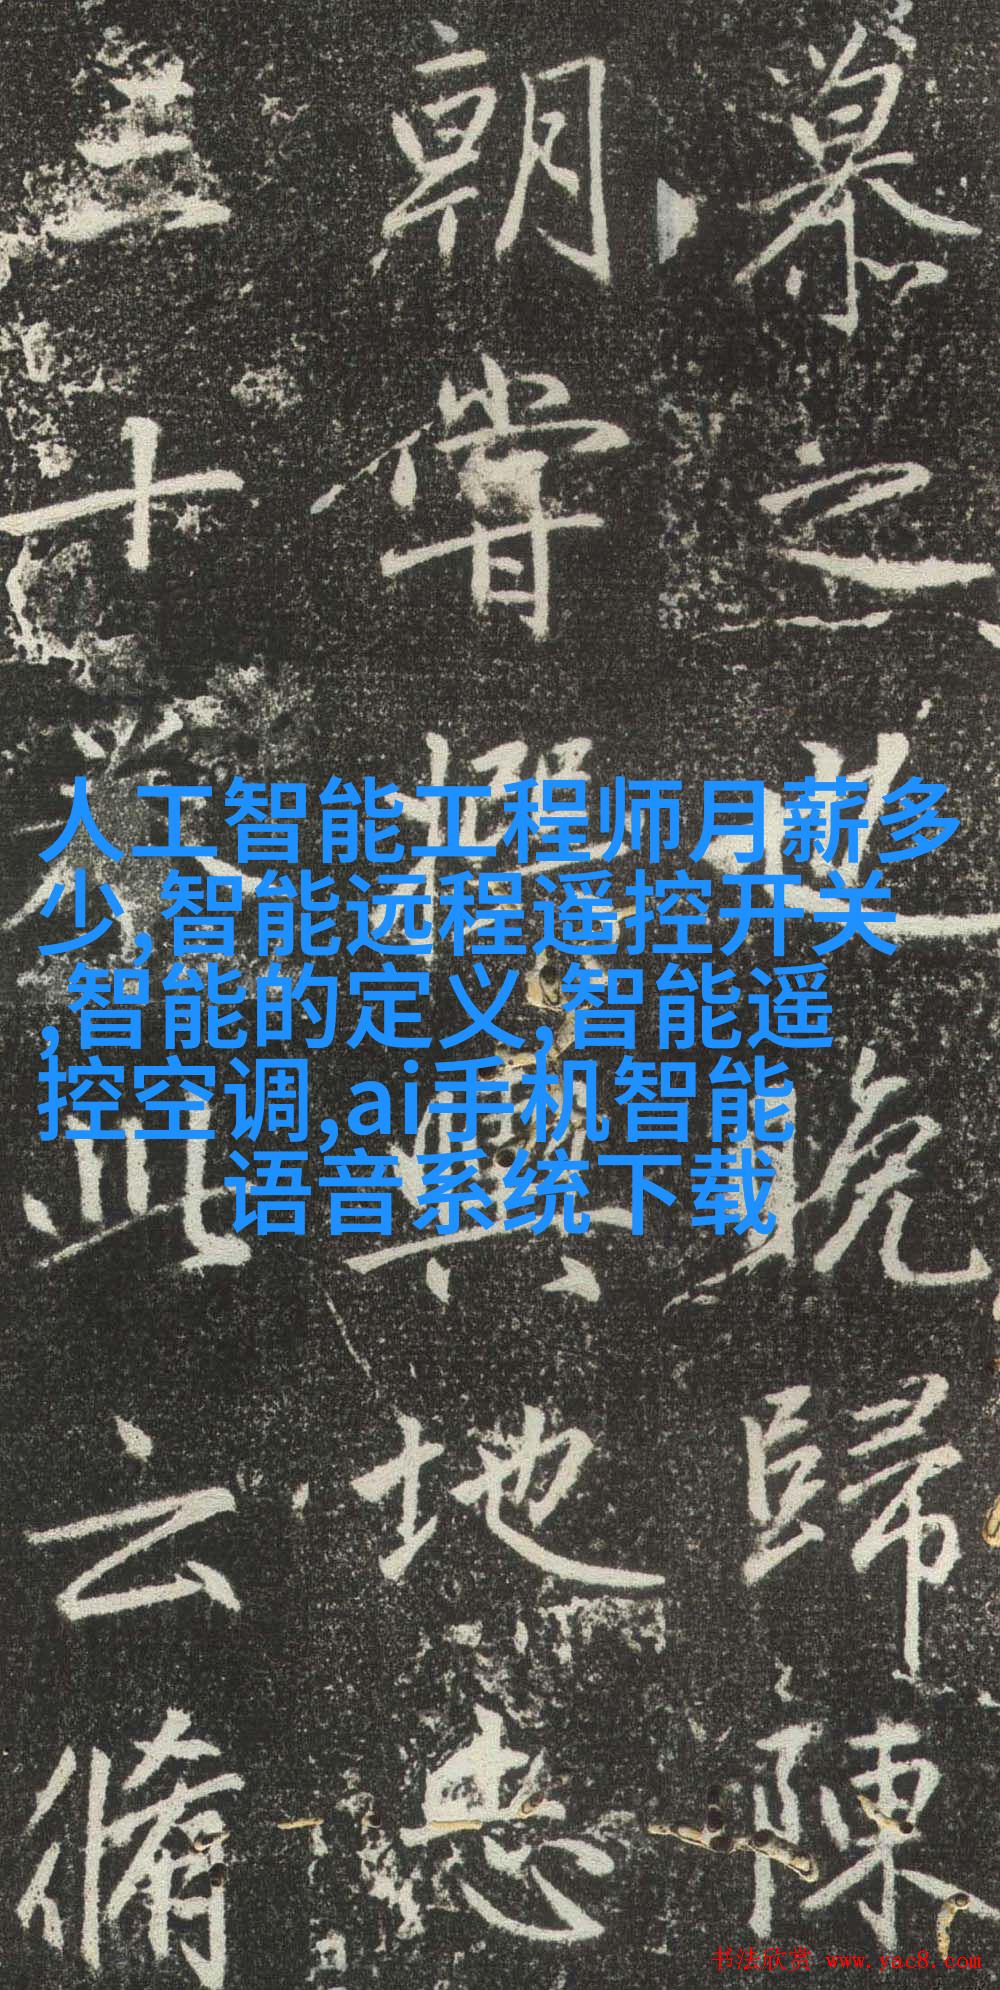 慕之此晚歸陳
朝甞與地忠
三十云脩
人工智能工程师月薪多
少,智能远程遥控开关
,智能的定义,智能遥
控空调,ai手机智能
语音系统下载
书法欣赏 www.yac8.com